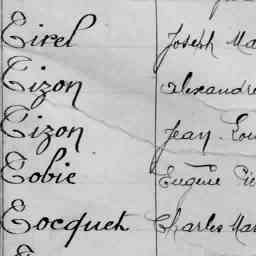 Tirel Joseph Ma
Tizon Alexandre
Tizon Jean Lou
Tobie Eugène Pie
Tocquet Charles Mar